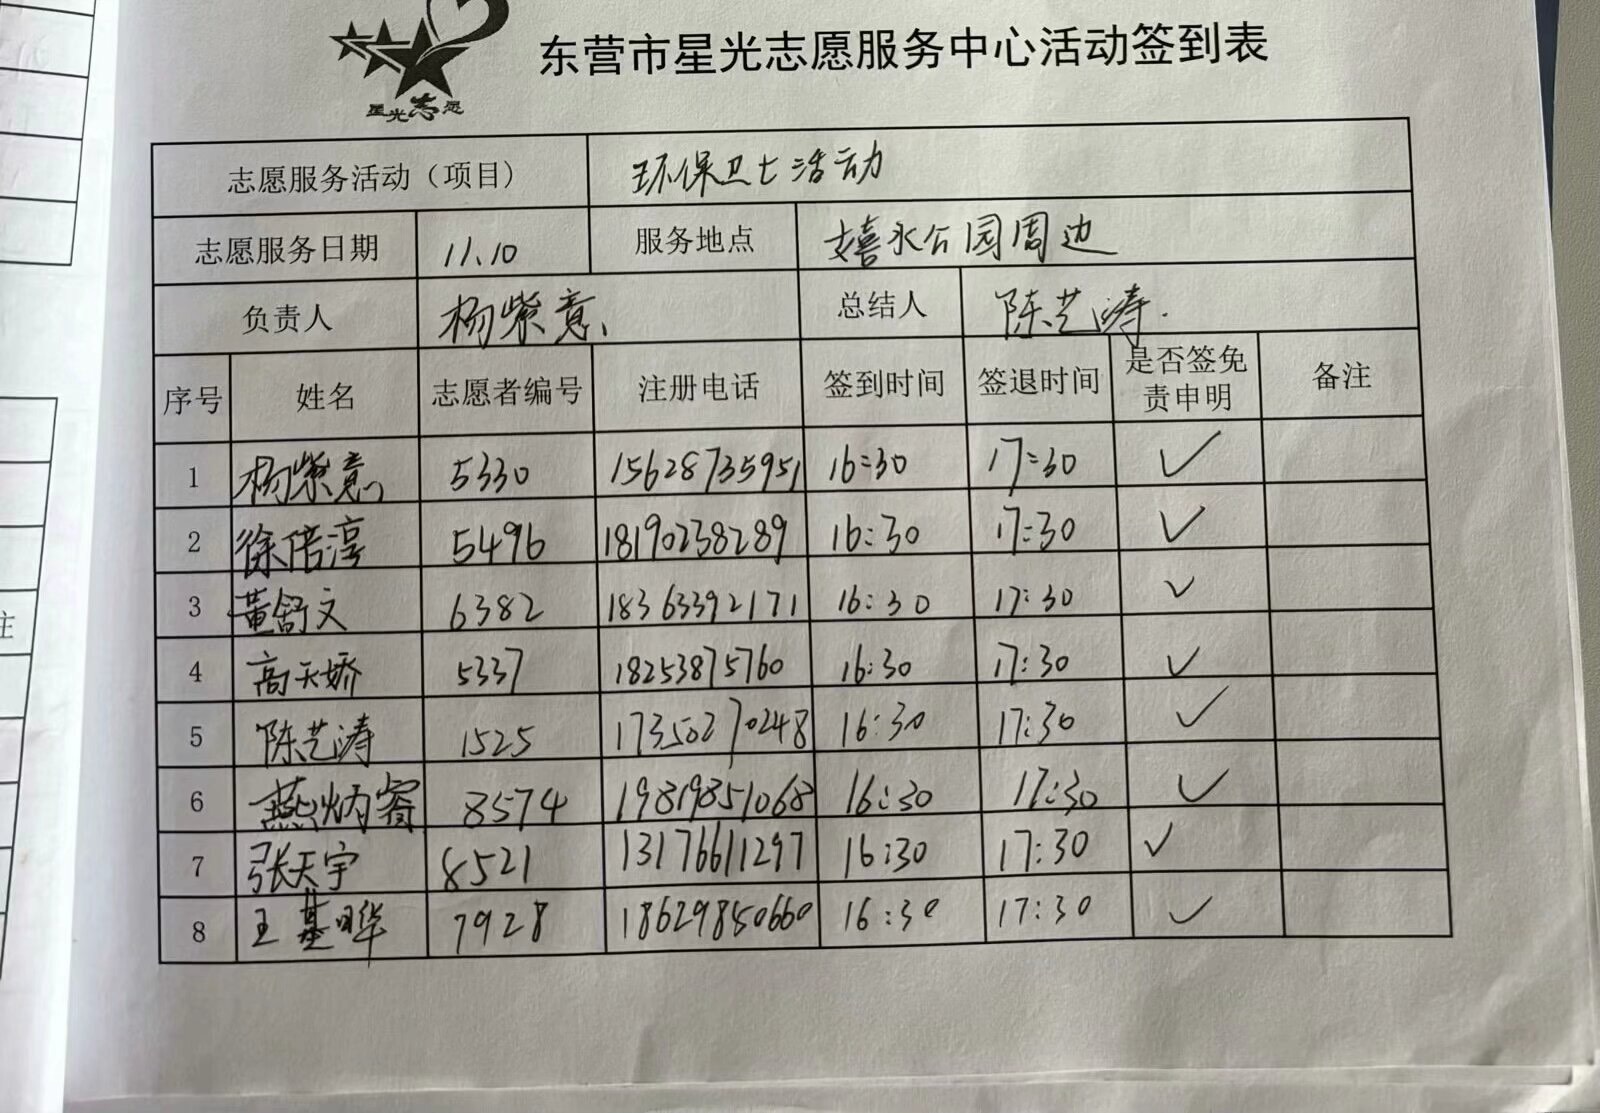 东营市星光志愿服务中心活动签到表
星光志愿
志愿服务活动（项目） 环保卫士活动
志愿服务日期 11.10 服务地点 嬉水公园周边
负责人 杨紫意 总结人 陈艺涛.
序号 姓名 志愿者编号 注册电话 签到时间 签退时间 是否签免责申明 备注
1 杨紫意 5330 15628735951 16:30 17:30 ✓
2 徐倍淳 5496 18190238289 16:30 17:30 ✓
3 黄舒文 6382 18363392171 16:30 17:30 ✓
4 高天娇 5337 18253875760 16:30 17:30 ✓
5 陈艺涛 1525 17350270248 16:30 17:30 ✓
6 燕炳睿 8574 19819851068 16:30 17:30 ✓
7 张天宇 8521 13176611297 16:30 17:30 ✓
8 王基晔 7928 18629850660 16:30 17:30 ✓
注